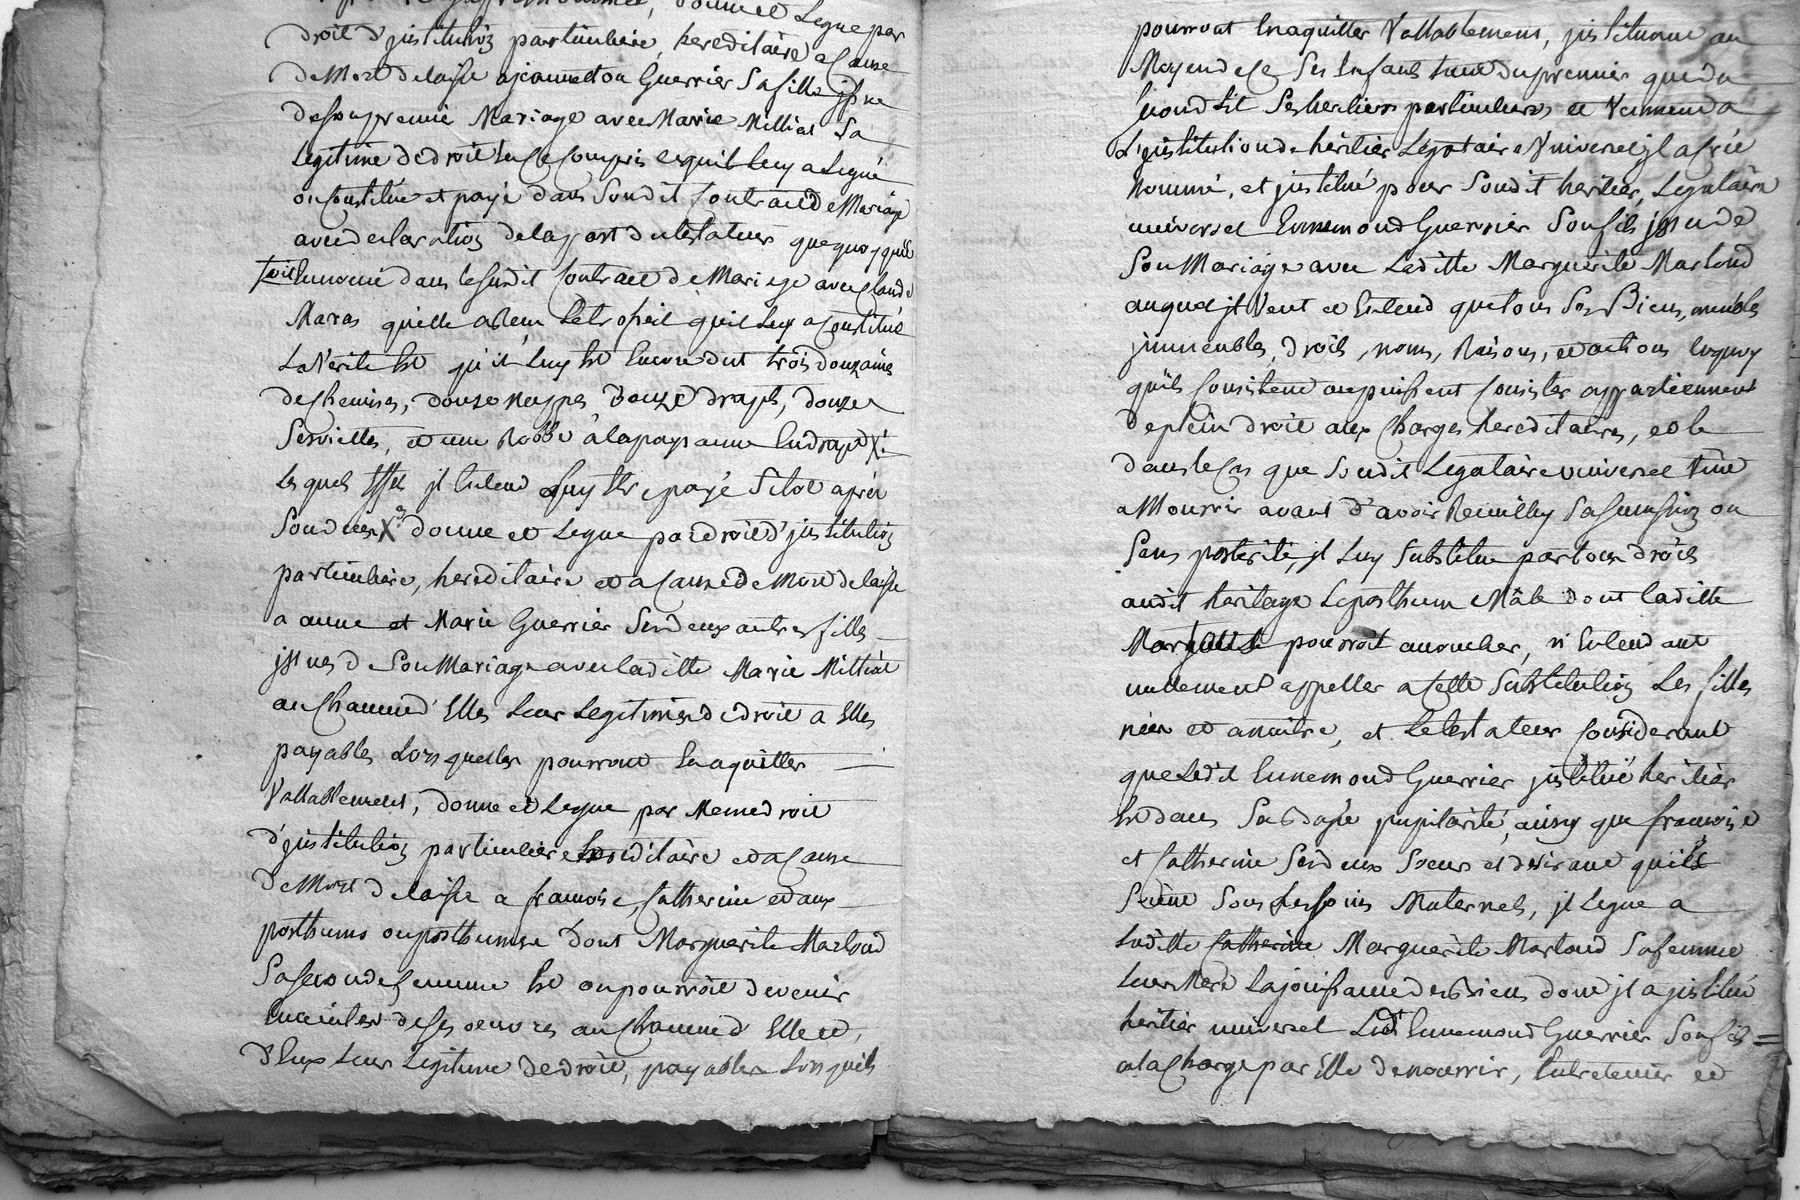 donne et Legue par
droit d'jnstitution particuliere, hereditaire a Cause
de Mort delaisse a jeanneton Guerrier Sa fille jssue
de son premier Mariage avec Marie Milliat Sa
Legitime de droit en Ce Compris ce quil Luy a Legué
ou Constitué et payé dans Son dit Contract de Mariage
avec declaration de la part du testateur que quoy quil
soit Enoncé dans le susdit Contract de Mariage avec Claude
Maras qu'elle a le trosseil qu'il Luy a Constitué
La Verité Est qu'il Luy Est Encore dut trois douzaines
de Chemises, douze Nappes douze draps, douze
Serviettes, et une Robbe a la paysanne En drap X.
Les quels Effets jl Entend Luy Etre payé Sitot aprés
Son deces X donne et Legue par droit d'jnstitution
particuliere, hereditaire et a Cause de Mort delaisse
a anne et Marie Guerrier Ses deux autres filles
jssues de Son Mariage avec Laditte Marie Milliat
a Chacune d'Elles Leur Legitime de droit a Elles
payables Lors quelles pourront En aquitter
Vallablement, donne et Legue par Meme droit
d'jnstitution particuliere hereditaire et a Cause
de Mort delaisse a francoise, Catherine et aux
posthume ou posthumes dont Marguerite Marloud
Sa seconde femme Est ou pourroit devenir
Enceinte de Ses oeuvres a Chacune d'Elle et
d'Eux Leur Legitime de droit, payables Lors quils
pourront En aquitter Vallablement, jnstituant au
Moyen de Ce Ses Enfants tant du premier que du
second Lit Ses heritiers particuliers et Venant a
L'jnstitution de heritier Legataire Universel jl a fait
Nommé, et jnstitué pour Son dit heritier, Legataire
universel Ennemond Guerrier Son fils jssu de
Son Mariage avec Laditte Marguerite Marloud
auquel jl Veut et Entend que tous Ses Biens, meubles
jmmeubles, droits, noms, Raisons, et actions En quoy
quils Consistent ou puissent Consister appartiennent
de plein droit aux Charges hereditaires, et le
dans le Cas que Son dit Legataire universel Vint
a Mourir avant d'avoir Recuilly Sa Sucession ou
Sans posterité, jl Luy Substitue par tous droits
au dit heritage Le posthume Mâle dont laditte
Marloud pourroit accoucher, n'Entendant
nullement appeller a Cette Substitution Les filles
nées et a naitre, et Le testateur Considerant
que Ledit Ennemond Guerrier jnstitué heritier
Est dans Sa Bas age pupilarité, ainsy que francoise
et Catherine Ses deux Soeurs et desirant quils
Soient Sous Les soins Maternels, jl Legue a
Laditte Catherine Marguerite Marloud Sa femme
Leur Mere La jouissance des Biens dont jl a jnstitué
heritier universel Ledit Ennemond Guerrier Son fils =
a la Charge par Elle de nourrir, Entretenir et